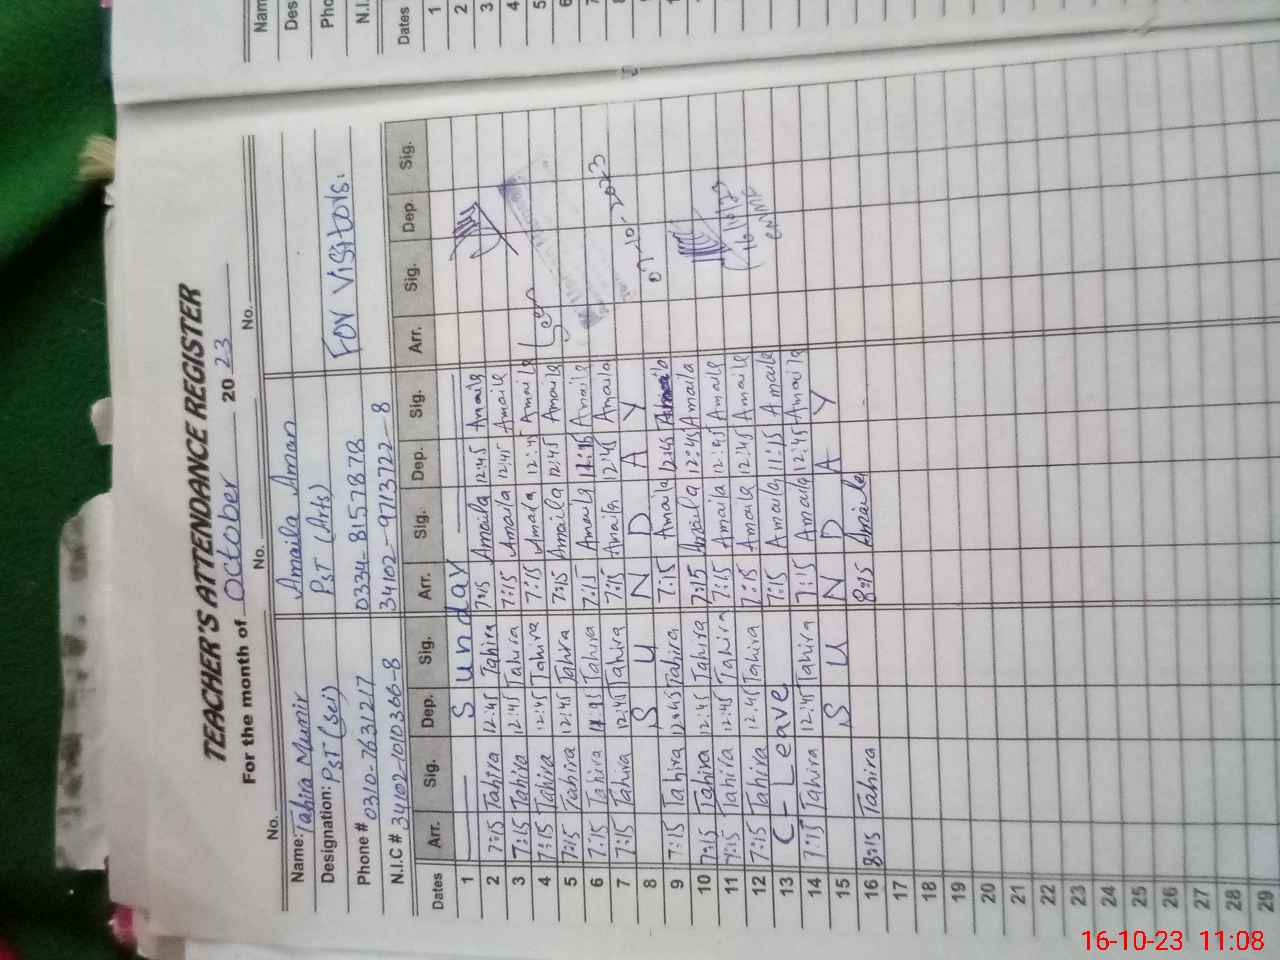 TEACHER'S ATTENDANCE REGISTER
For the month of October 20 23
No. No. No.
Name: Tahira Munir Amaila Aman
Designation: PST (Sci) PST (Arts) For Visitors.
Phone # 0310-7631217 0334-8157878
N.I.C # 34102-1010366-8 34102-9713722-8
Dates Arr. Sig. Dep. Sig. Arr. Sig. Dep. Sig. Arr. Sig. Dep. Sig.
1 Sunday
2 7:15 Tahira 12:45 Tahira 7:15 Amaila 12:45 Amaila
3 7:15 Tahira 12:45 Tahira 7:15 Amaila 12:45 Amaila
4 7:15 Tahira 12:45 Tahira 7:15 Amaila 12:45 Amaila
5 7:15 Tahira 12:45 Tahira 7:15 Amaila 12:45 Amaila
6 7:15 Tahira Tahira 7:15 Amaila Amaila
7 7:15 Tahira 12:45 Tahira 7:15 Amaila 12:45 Amaila 07-10-2023
8 S U N D A Y
9 7:15 Tahira 12:45 Tahira 7:15 Amaila 12:45 Amaila
10 7:15 Tahira 12:45 Tahira 7:15 Amaila 12:45 Amaila
11 7:15 Tahira 12:45 Tahira 7:15 Amaila 12:45 Amaila 16/10/23
12 7:15 Tahira 12:45 Tahira 7:15 Amaila 12:45 Amaila
13 C-Leave 7:15 Amaila 11:15 Amaila
14 7:15 Tahira 12:45 Tahira 7:15 Amaila 12:45 Amaila
15 S U N D A Y
16 8:15 Tahira 8:15 Amaila
17
18
19
20
21
22
23
24
25
26
27
28
29
Nam
Des
Pho
N.I.
Dates
1
2
3
4
5
6
7
8
9
16-10-23 11:08